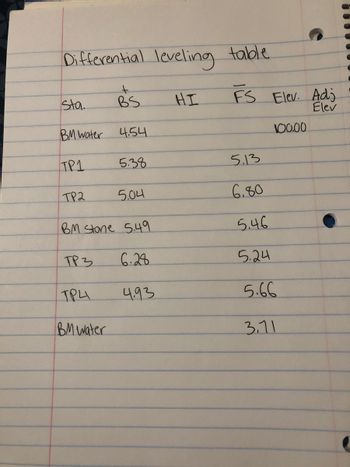 Differential leveling table
+ −
Sta. BS HI FS Elev. Adj Elev
BM water 4.54 100.00
TP1 5.38 5.13
TP2 5.04 6.80
BM Stone 5.49 5.46
TP3 6.28 5.24
TP4 4.93 5.66
BM water 3.71